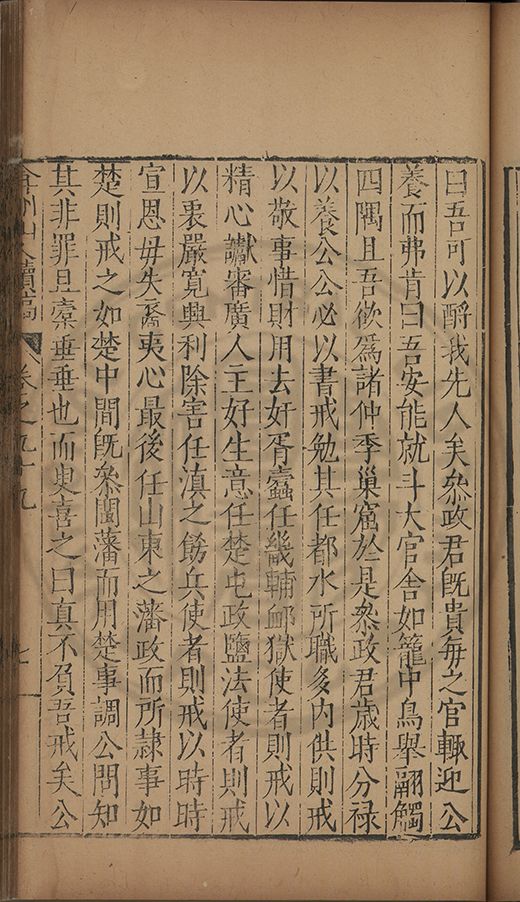 曰吾可以酹我先人矣叅政君旣貴每之官輙迎公
養而弗肯曰吾安能就斗大官舍如籠中鳥舉翮觸
四隅且吾欲爲諸仲季巢窟於是叅政君歲時分祿
以養公公必以書戒勉其任都水所職多內供則戒
以敬事惜財用去奸胥蠹任畿輔䘏獄使者則戒以
精心讞審廣人主好生意任楚屯政鹽法使者則戒
以裛嚴寛興利除害任滇之餝兵使者則戒以時時
宣恩毋失裔夷心最後任山東之藩政而所隷事如
楚則戒之如楚中間旣叅閩藩而用楚事調公問知
其非罪且橐垂垂也而叟喜之曰真不負吾戒矣公
弇州山人續稿 卷之九十九 七